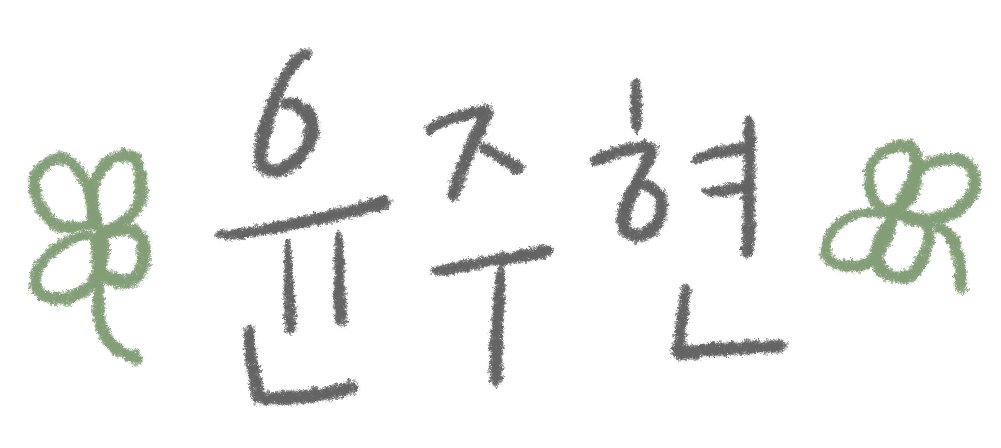 윤주현